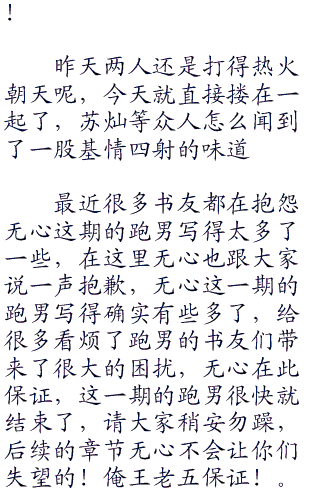 ！
昨天两人还是打得热火
朝天呢，今天就直接搂在一
起了，苏灿等众人怎么闻到
了一股基情四射的味道
最近很多书友都在抱怨
无心这期的跑男写得太多了
一些，在这里无心也跟大家
说一声抱歉，无心这一期的
跑男写得确实有些多了，给
很多看烦了跑男的书友们带
来了很大的困扰，无心在此
保证，这一期的跑男很快就
结束了，请大家稍安勿躁，
后续的章节无心不会让你们
失望的！俺王老五保证！。